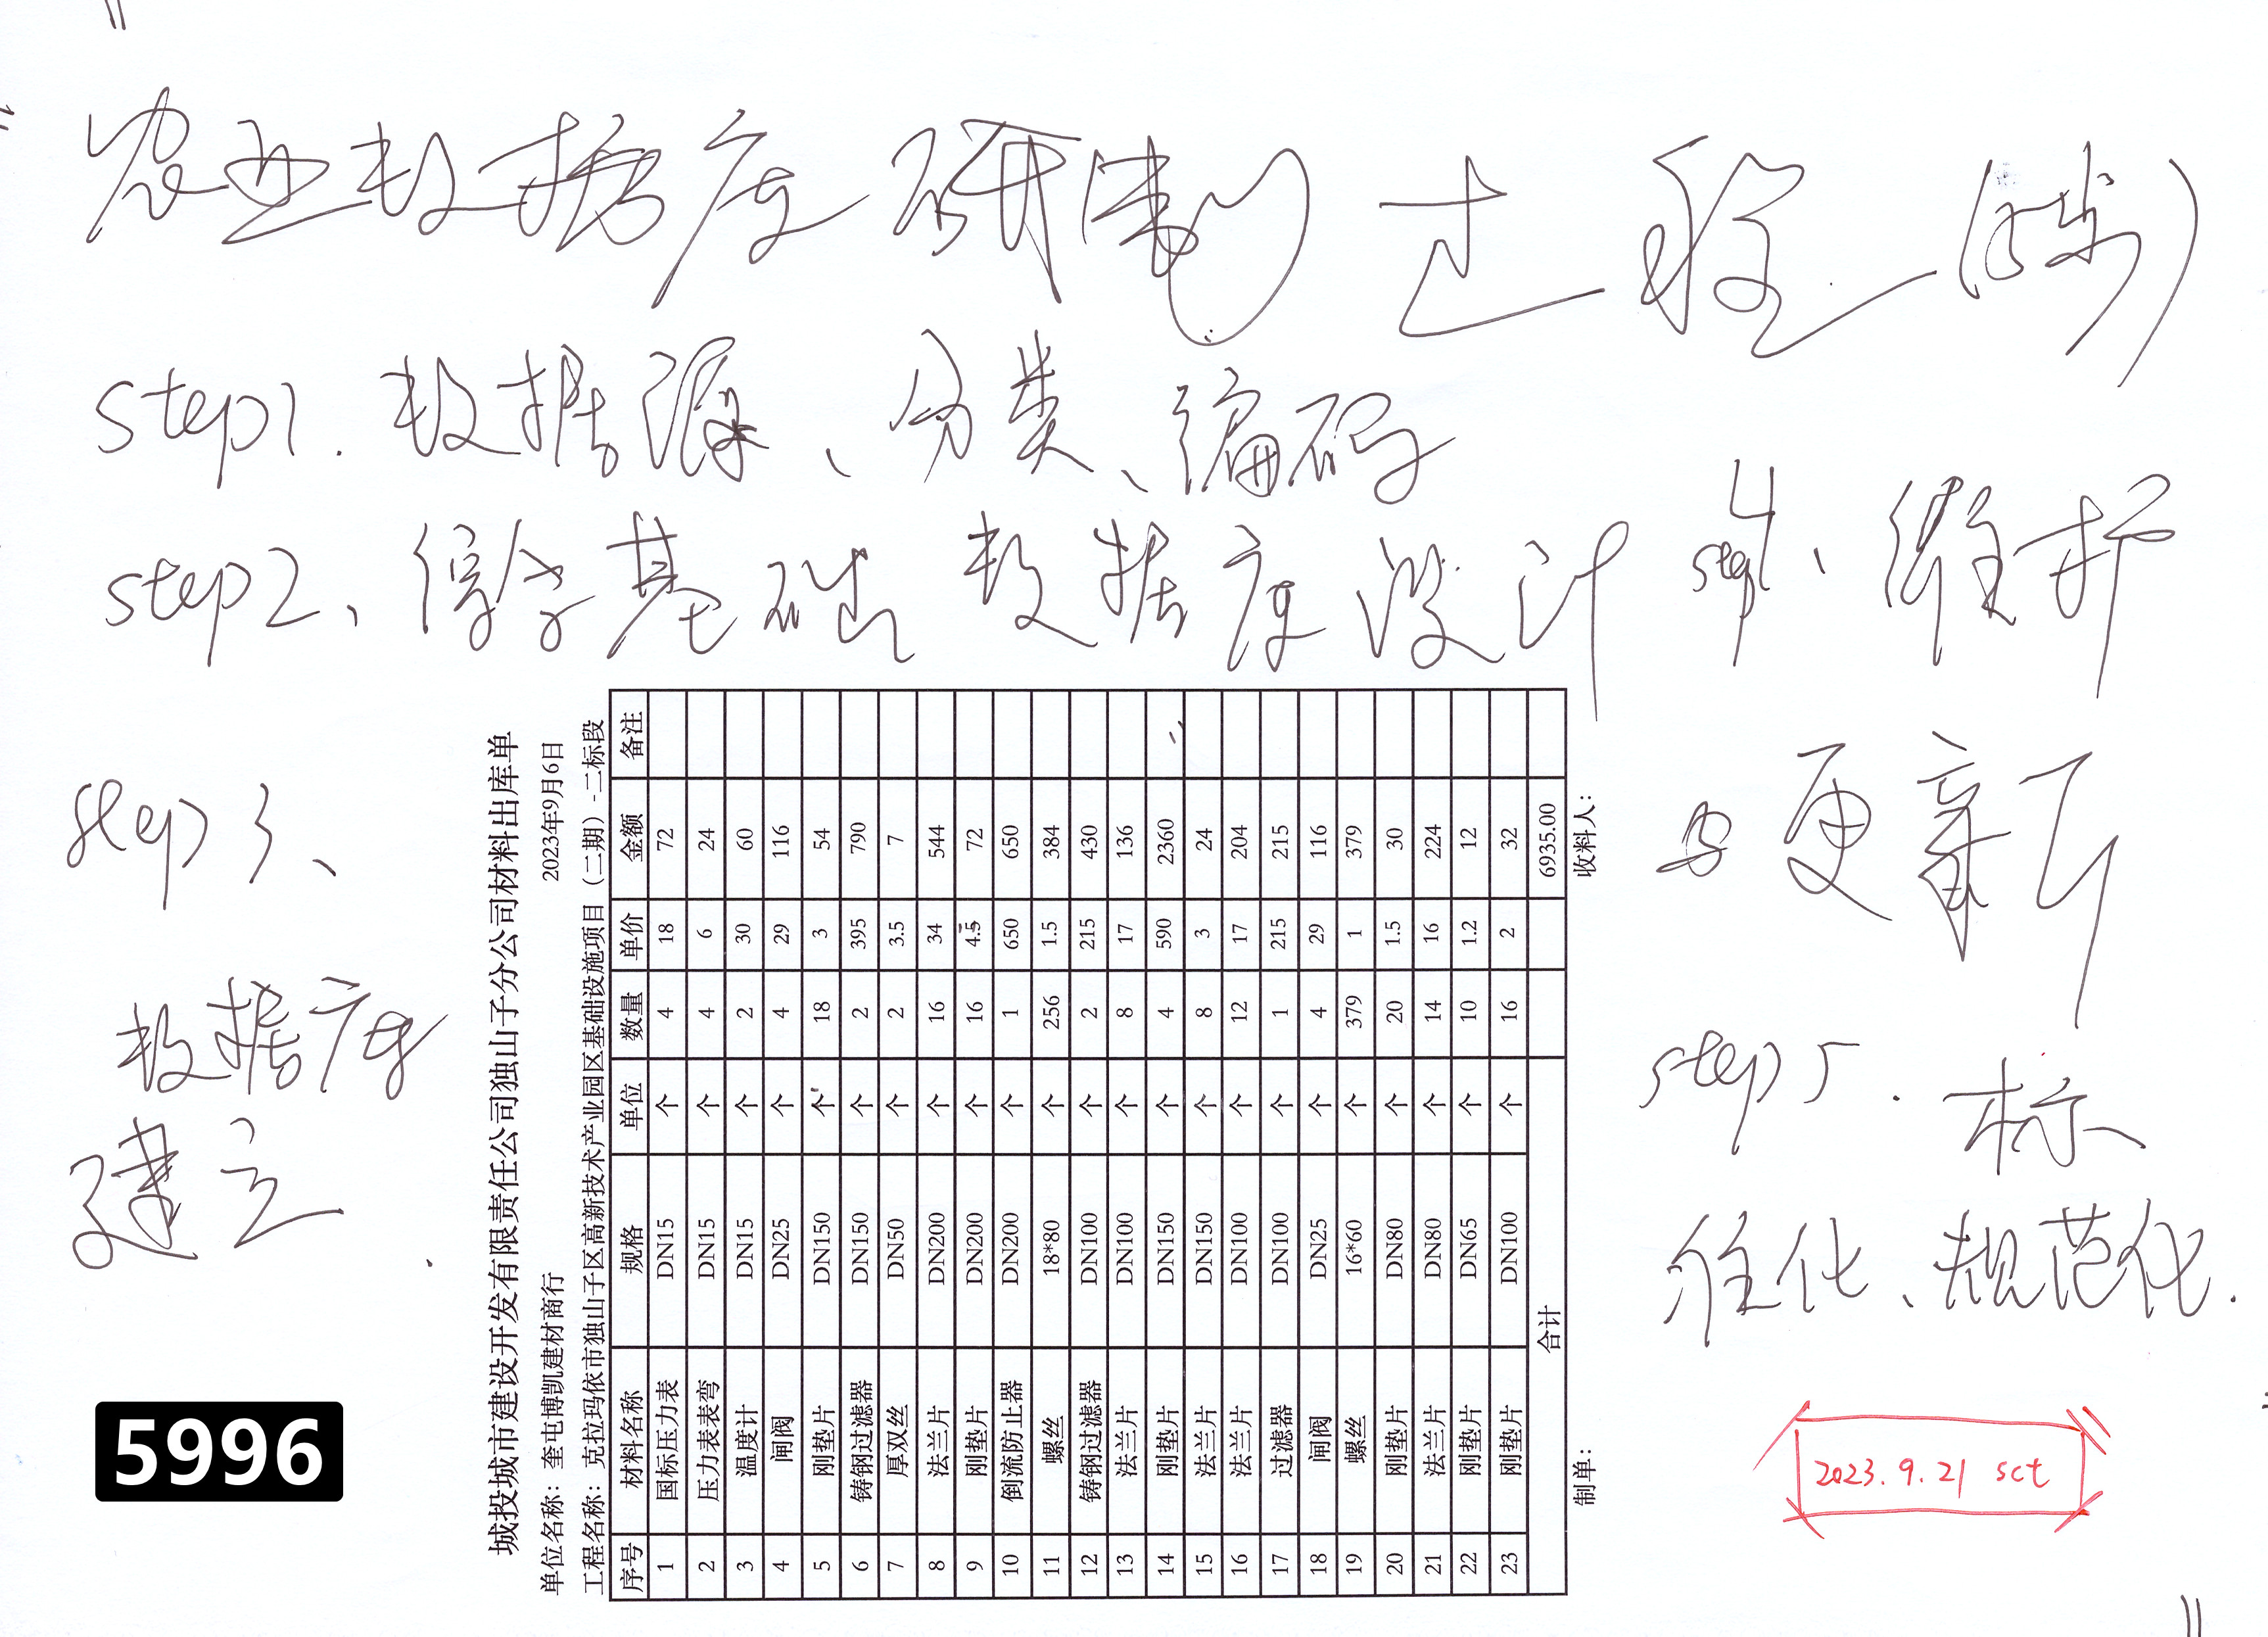 农业数据库研制过程(略)
step1. 数据源、分类、编码
step2、俘学基础数据库设计
step3、
数据库
建立.
step4、维护
与更新
step5. 标
准化、规范化.
城投城市建设开发有限责任公司独山子分公司材料出库单
单位名称：奎屯博凯建材商行 2023年9月6日
工程名称：克拉玛依市独山子区高新技术产业园区基础设施项目（二期）-二标段
序号 材料名称 规格 单位 数量 单价 金额 备注
1 国标压力表 DN15 个 4 18 72
2 压力表表弯 DN15 个 4 6 24
3 温度计 DN15 个 2 30 60
4 闸阀 DN25 个 4 29 116
5 刚垫片 DN150 个 18 3 54
6 铸钢过滤器 DN150 个 2 395 790
7 厚双丝 DN50 个 2 3.5 7
8 法兰片 DN200 个 16 34 544
9 刚垫片 DN200 个 16 4.5 72
10 倒流防止器 DN200 个 1 650 650
11 螺丝 18*80 个 256 1.5 384
12 铸钢过滤器 DN100 个 2 215 430
13 法兰片 DN100 个 8 17 136
14 刚垫片 DN150 个 4 590 2360
15 法兰片 DN150 个 8 3 24
16 法兰片 DN100 个 12 17 204
17 过滤器 DN100 个 1 215 215
18 闸阀 DN25 个 4 29 116
19 螺丝 16*60 个 379 1 379
20 刚垫片 DN80 个 20 1.5 30
21 法兰片 DN80 个 14 16 224
22 刚垫片 DN65 个 10 1.2 12
23 刚垫片 DN100 个 16 2 32
合计 6935.00
制单： 收料人：
5996
2023.9.21 sct